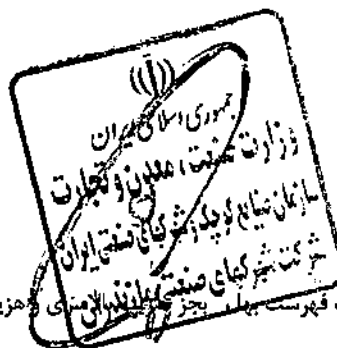 جمهوری اسلامی ایران
وزارت صنعت، معدن و تجارت
سازمان صنایع کوچک و شهرکهای صنعتی ایران
شرکت شهرکهای صنعتی مازندران
فهرست بها، بجز